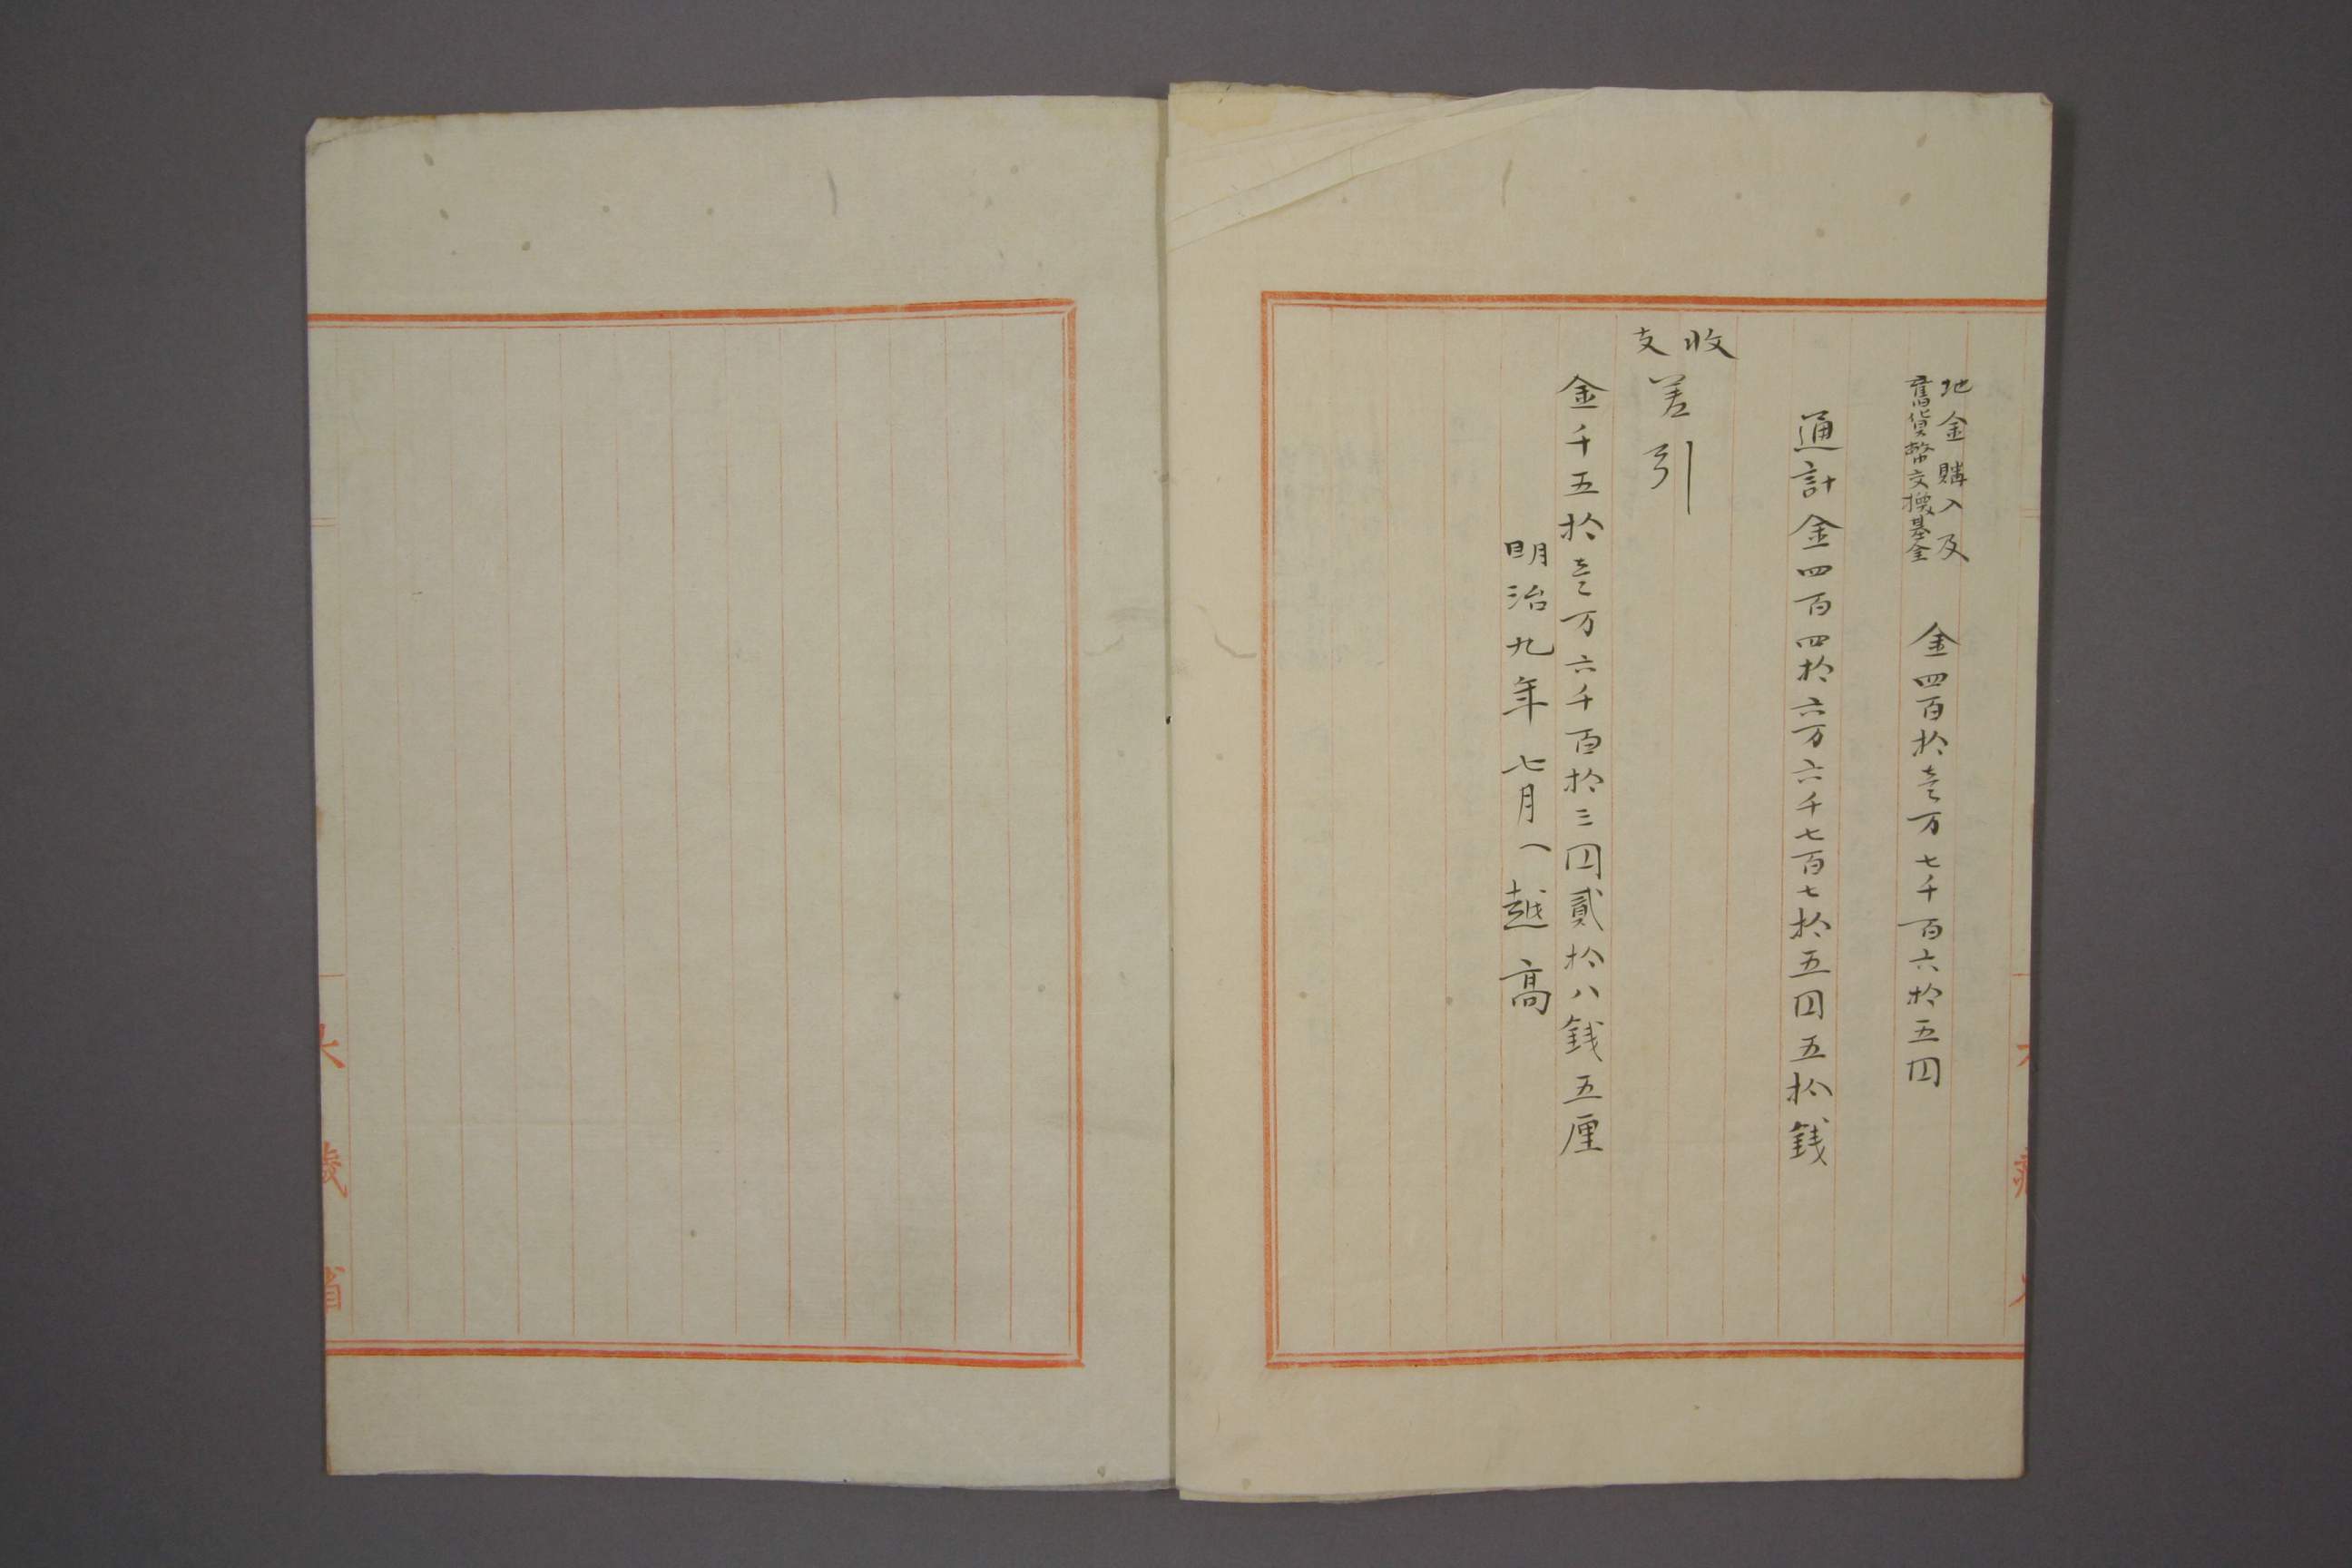 地金購入及
舊貨幣交換基金
金四百拾壱万七千百六拾五円
通計金四百四拾六万六千七百七拾五円五拾銭
収支差引
金千五拾壱万六千百拾三円貳拾八銭五厘
明治九年七月ヘ越高
大蔵省